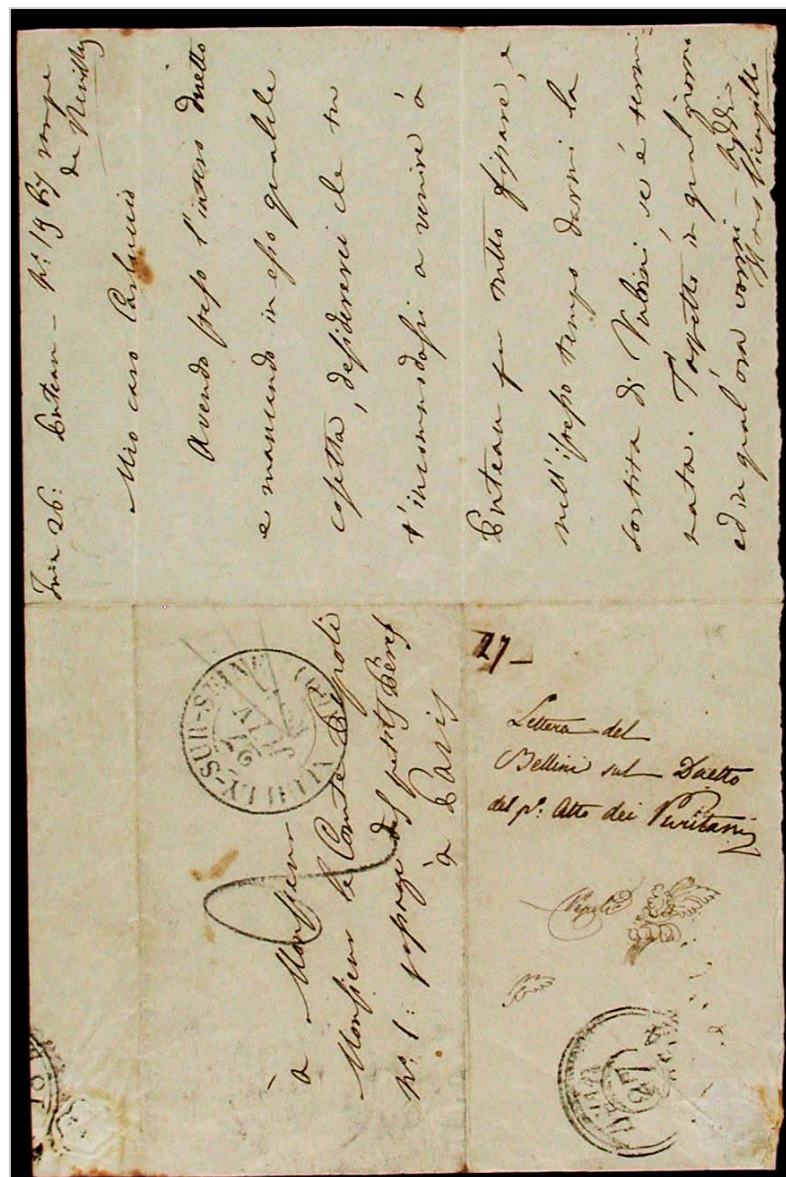 Juin 26: Puteau - N.º 19 bis rampe
de Neuilly
Mio caro Carluccio
Avendo steso l'intero duetto
e mancando in esso qualche
cosetta, desidererei che tu
t'incomodassi a venire à
Puteau per tutto fissare, e
nell'istesso tempo darmi la
sortita di se é termi-
nata. T'aspetto in qual giorno
ed in qual'ora vorrai - Addio
à Monsieur
Monsieur le Comte Pepoli
N.º 1: passage des petits Pères
à Paris
NEUILLY-SUR-SEINE
27
JUIN
27
Lettera del
Bellini sul Duetto
del p.º Atto dei Puritani
Pepoli
27